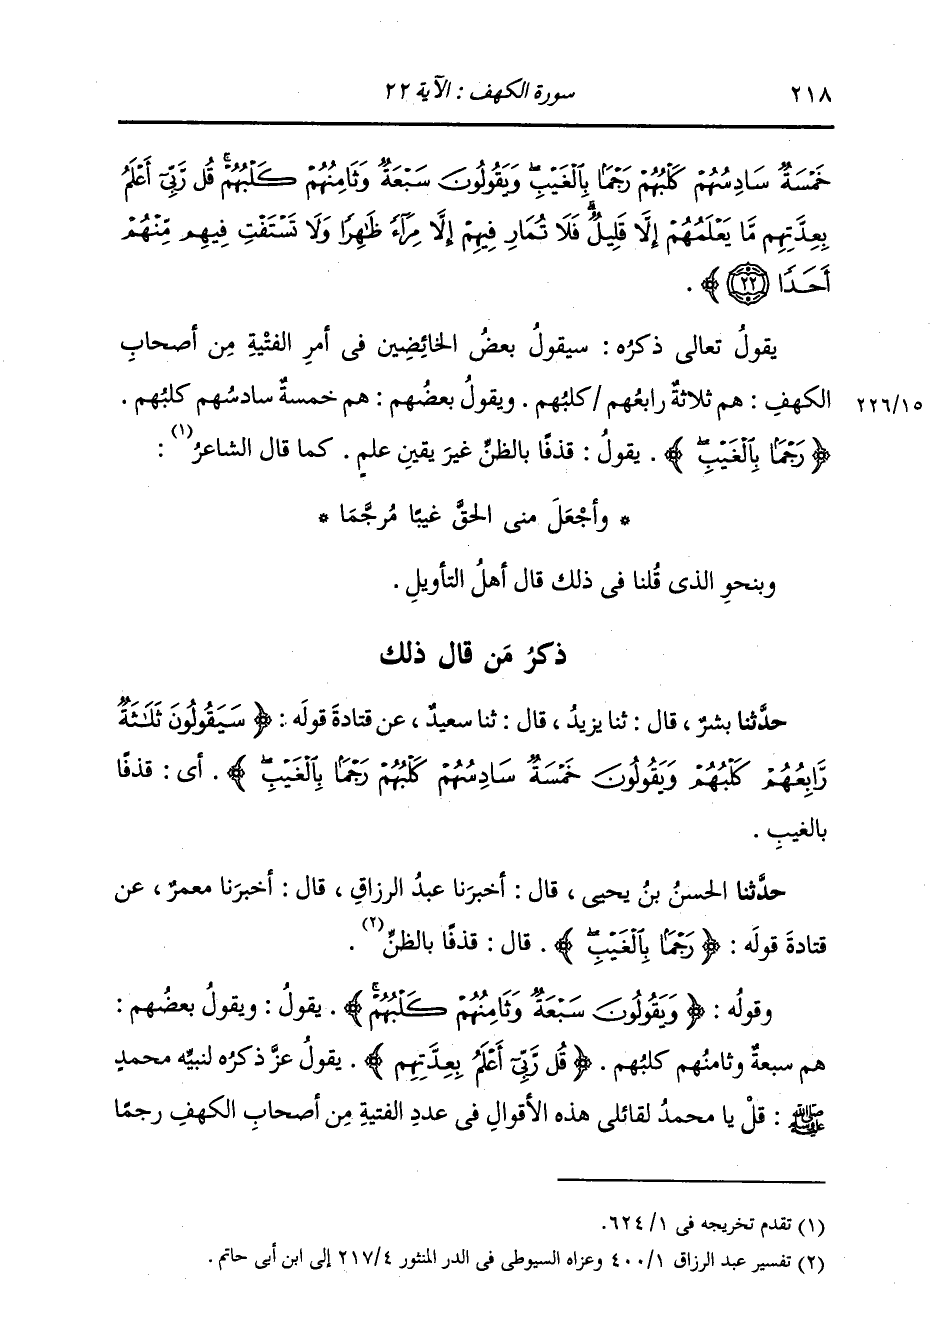 ٢١٨ سورة الكهف : الآية ٢٢
خَمْسَةٌ سَادِسُهُمْ كَلْبُهُمْ رَجْمًا بِالْغَيْبِ ۖ وَيَقُولُونَ سَبْعَةٌ وَثَامِنُهُمْ كَلْبُهُمْ ۚ قُل رَّبِّي أَعْلَمُ
بِعِدَّتِهِم مَّا يَعْلَمُهُمْ إِلَّا قَلِيلٌ ۗ فَلَا تُمَارِ فِيهِمْ إِلَّا مِرَاءً ظَاهِرًا وَلَا تَسْتَفْتِ فِيهِم مِّنْهُمْ
أَحَدًا ﴿٢٢﴾ ﴾ .
يقولُ تعالى ذكرُه : سيقولُ بعضُ الخائِضِين فى أمرِ الفتْيةِ مِن أصحابِ
٢٢٦/١٥ الكهفِ : هم ثلاثةٌ رابعُهم /كلبُهم . ويقولُ بعضُهم : هم خمسةٌ سادسُهم كلبُهم .
﴿ رَجْمًا بِالْغَيْبِ ۖ ﴾ . يقولُ : قذفًا بالظنِّ غيرَ يقينِ علمٍ . كما قال الشاعرُ(١) :
* وأجْعَلَ منى الحقَّ غيبًا مُرجَّمَا *
وبنحوِ الذى قُلنا فى ذلك قال أهلُ التأويلِ .
ذكرُ مَن قال ذلك
حدَّثنا بشرٌ ، قال : ثنا يزيدُ ، قال : ثنا سعيدٌ ، عن قتادةَ قولَه : ﴿ سَيَقُولُونَ ثَلَاثَةٌ
رَّابِعُهُمْ كَلْبُهُمْ وَيَقُولُونَ خَمْسَةٌ سَادِسُهُمْ كَلْبُهُمْ رَجْمًا بِالْغَيْبِ ۖ ﴾ . أى : قذفًا
بالغيبِ .
حدَّثنا الحسنُ بنُ يحيى ، قال : أخبرَنا عبدُ الرزاقِ ، قال : أخبرَنا معمرٌ ، عن
قتادةَ قولَه : ﴿ رَجْمًا بِالْغَيْبِ ۖ ﴾ . قال : قذفًا بالظنِّ(٢) .
وقولُه : ﴿ وَيَقُولُونَ سَبْعَةٌ وَثَامِنُهُمْ كَلْبُهُمْ ۚ ﴾ . يقولُ : ويقولُ بعضُهم :
هم سبعةٌ وثامنُهم كلبُهم . ﴿ قُل رَّبِّي أَعْلَمُ بِعِدَّتِهِم ﴾ . يقولُ عزَّ ذكرُه لنبيِّه محمدٍ
ﷺ : قلْ يا محمدُ لقائلى هذه الأقوالِ فى عددِ الفتيةِ مِن أصحابِ الكهفِ رجمًا
(١) تقدم تخريجه فى ٦٢٤/١.
(٢) تفسير عبد الرزاق ٤٠٠/١ وعزاه السيوطى فى الدر المنثور ٢١٧/٤ إلى ابن أبى حاتم .